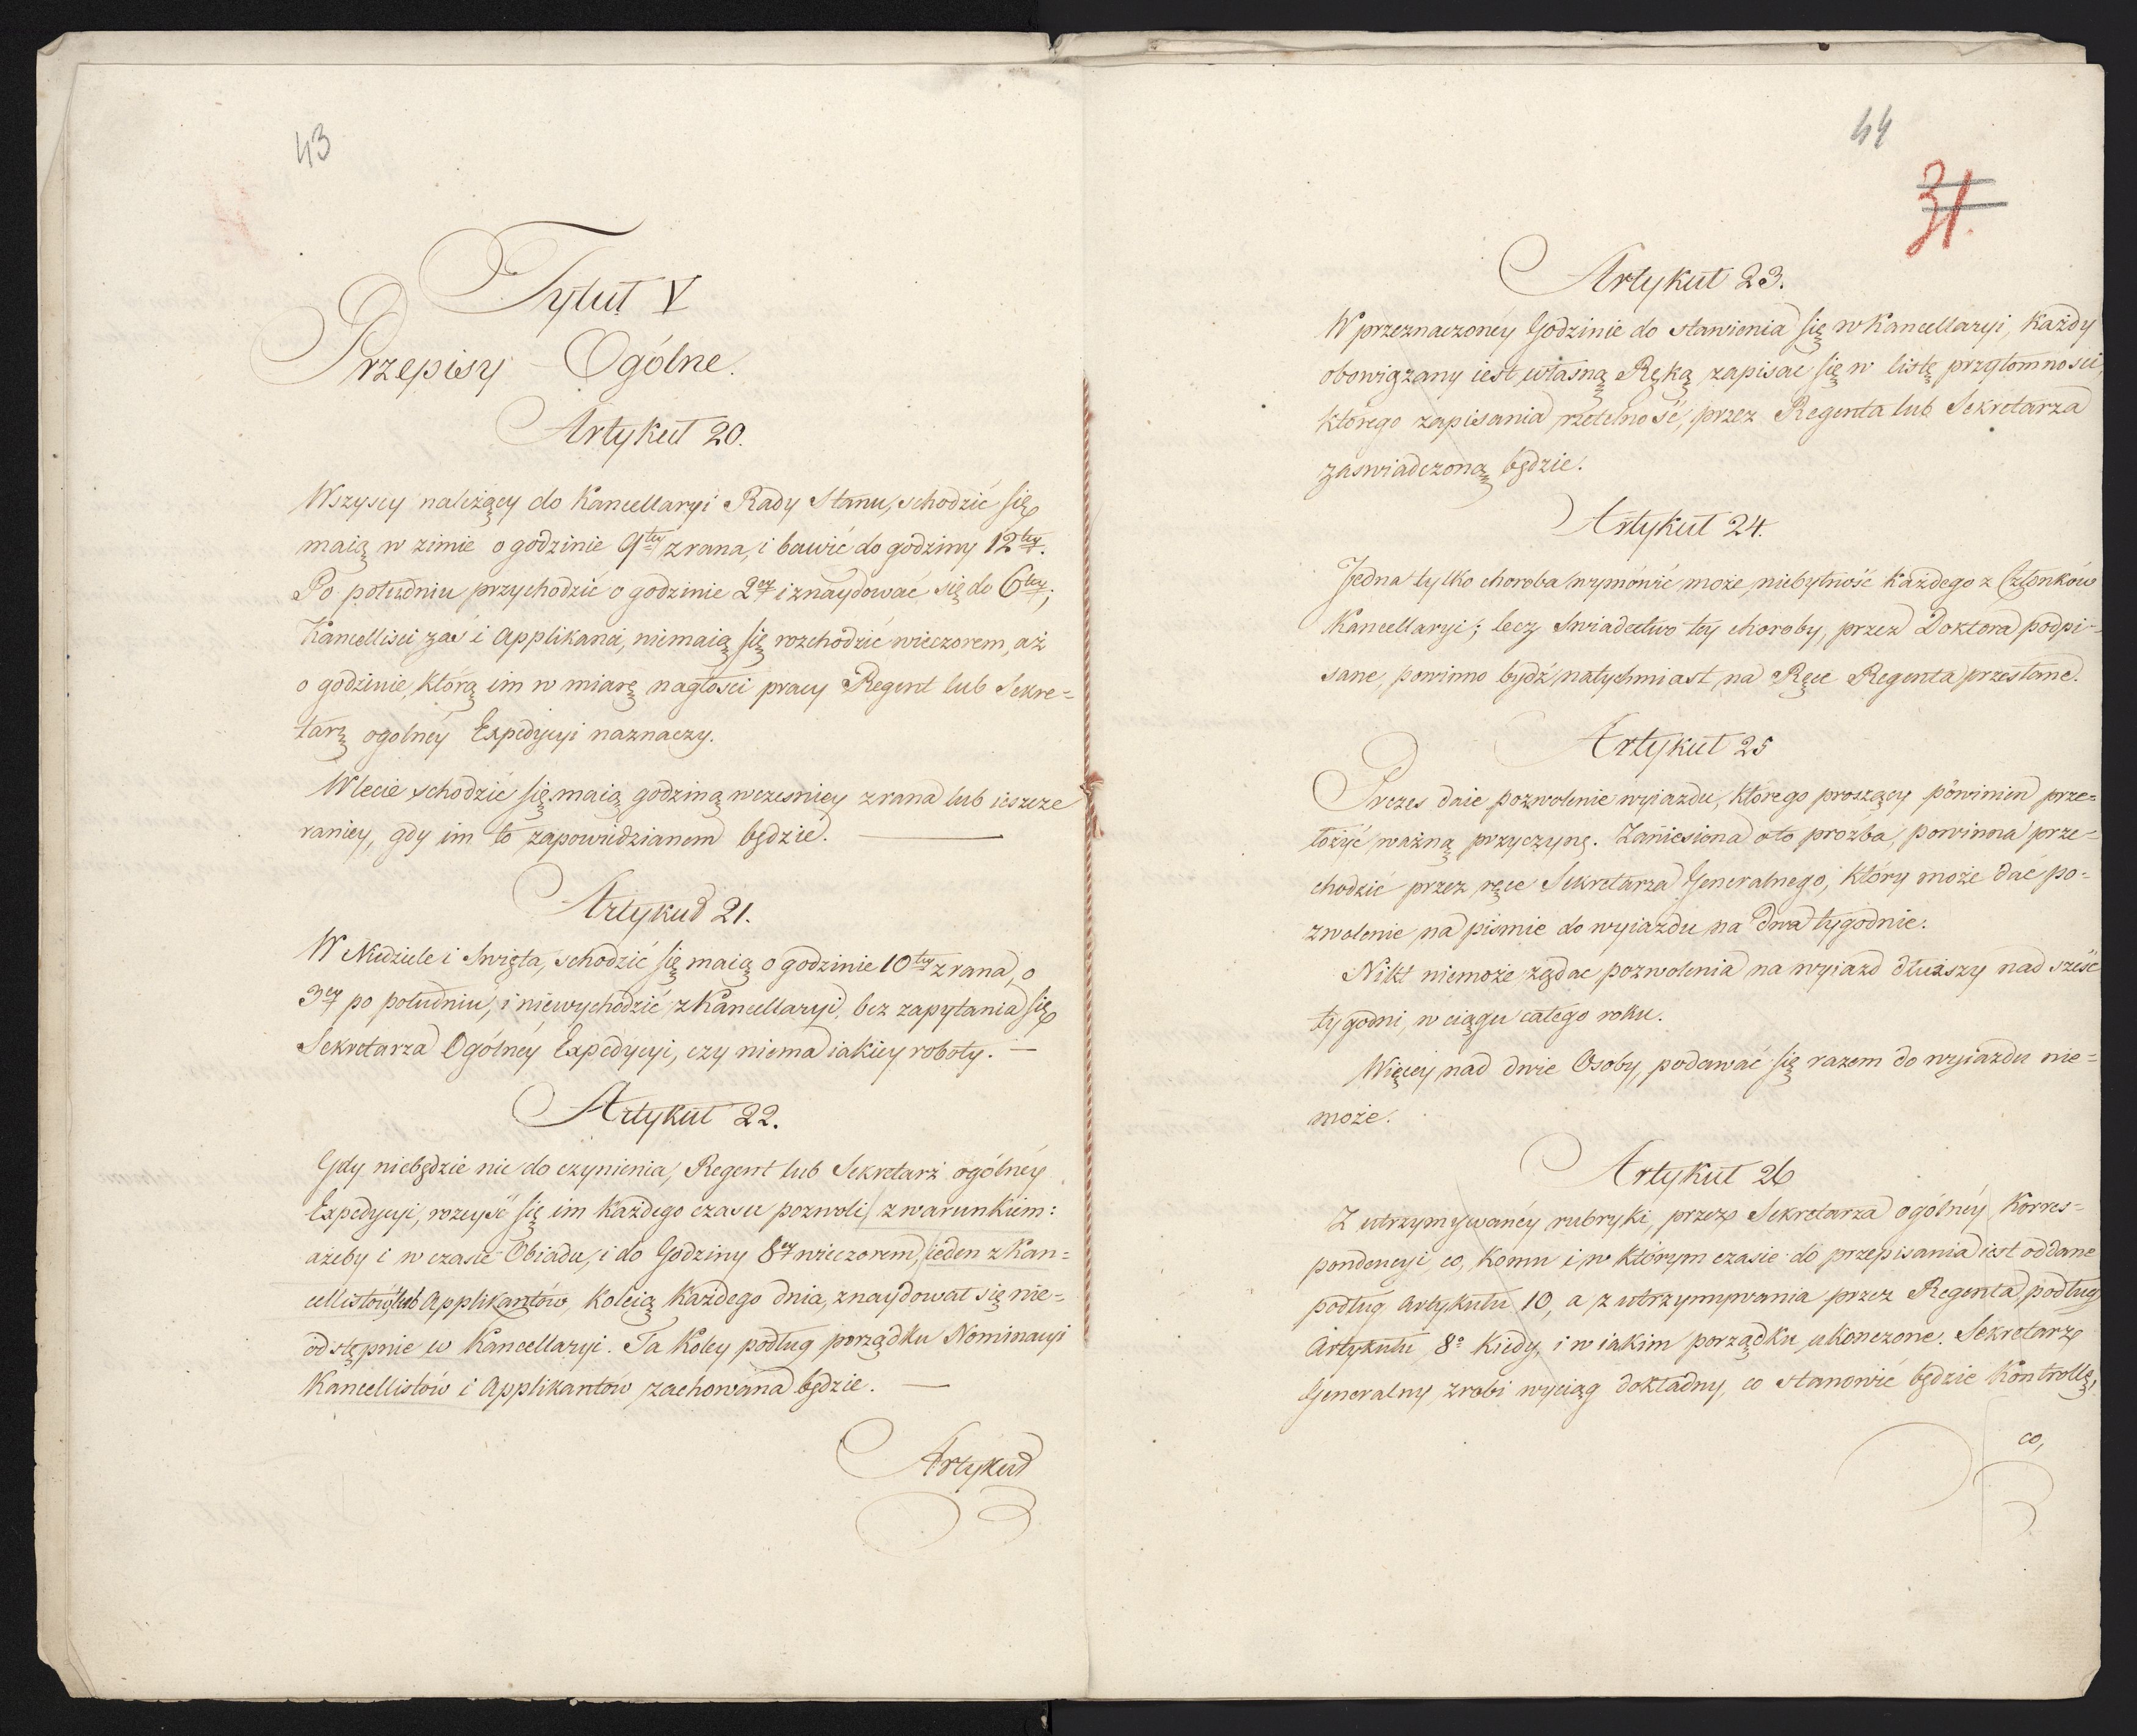 43
Tytuł V
Przepisy Ogólne.
Artykuł 20.
Wszyscy należący do Kancellaryi Rady Stanu, schodzić się
maią w zimie o godzinie 9tey z rana, i bawić do godziny 12tey.
Po południu przychodzić o godzinie 2ey i znaydować się do 6tey;
Kancelliści zaś i Applikanci, niemaią się rozchodzić wieczorem, aż
o godzinie, którą im w miarę nagłości pracy Regent lub Sekre=
tarz ogólney Expedycyi naznaczy.
W lecie schodzić się maią godziną wczesniey z rana lub ieszcze
raniey, gdy im to zapowiedzianem będzie.
Artykuł 21.
W Niedziele i Swięta, schodzić się maią o godzinie 10tey z rana, o
3ey po południu, i niewychodzić z Kancellaryi, bez zapytania się
Sekretarza Ogólney Expedycyi, czy niema iakiey roboty. —
Artykuł 22.
Gdy niebędzie nic do czynienia, Regent lub Sekretarz ogólney
Expedycyi, rozeyść się im każdego czasu pozwoli, z warunkiem:
ażeby i w czasie Obiadu, i do Godziny 8ey wieczorem, ieden z Kan=
cellistów lub Applikantów, koleią każdego dnia, znaydował się nie=
odstępnie w Kancellaryi. Ta koley podług porządku Nominacyi
Kancellistów i Applikantów zachowana będzie. —
Artykuł
44
31.
Artykuł 23.
W przeznaczoney Godzinie do stawienia się w Kancellaryi, każdy
obowiązany iest własną Ręką zapisać się w listę przytomności,
którego zapisania rzetelność, przez Regenta lub Sekretarza
zaswiadczoną będzie.
Artykuł 24.
Jedna tylko choroba wymówić może niebytność każdego z Członków
Kancellaryi; lecz Swiadectwo tey choroby, przez Doktora podpi-
sane, powinno bydź natychmiast na Ręce Regenta przesłane.
Artykuł 25
Prezes daie pozwolenie wyiazdu, którego proszący powinien prze=
łożyć ważną przyczynę. Zaniesiona o to prozba, powinna prze=
chodzić przez ręce Sekretarza Generalnego, który może dać po=
zwolenie na pismie do wyiazdu na dwa tygodnie.
Nikt niemoże żądac pozwolenia na wyiazd dłuższy nad sześć
tygodni, w ciągu całego roku.
Więcey nad dwie Osoby, podawać się razem do wyiazdu nie=
może.
Artykuł 26
Z utrzymywaney rubryki, przez Sekretarza ogólney Korres-
pondencyi, co, komu i w którym czasie do przepisania iest oddane
podług Artykułu 10, a z utrzymywania przez Regenta, podług
Artykułu 8o kiedy, i w iakim porządku ukonczone. Sekretarz
Generalny zrobi wyciąg dokładny, co stanowić będzie Kontrollę,
co,